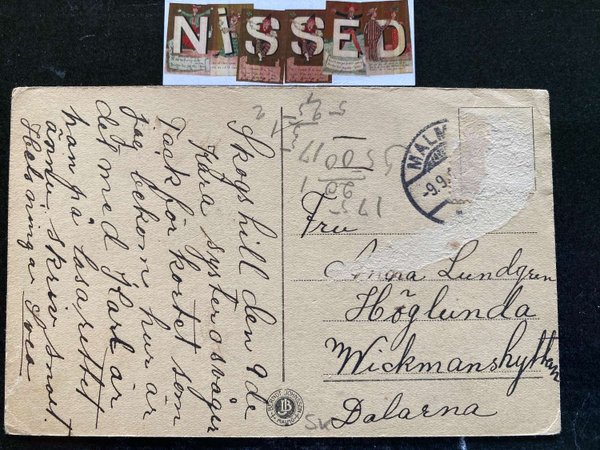 NiSSED
Skogshill den 9de
Kära syster o svåger
Tack för kortet som
jag bekom hur är
det med Karl är
han på lasarettet
ännu skriv snart.
Helsningar Svea
MALM
-9.9.
Fru
Anna Lundgren
Höglunda
Wickmanshyttan
Dalarna